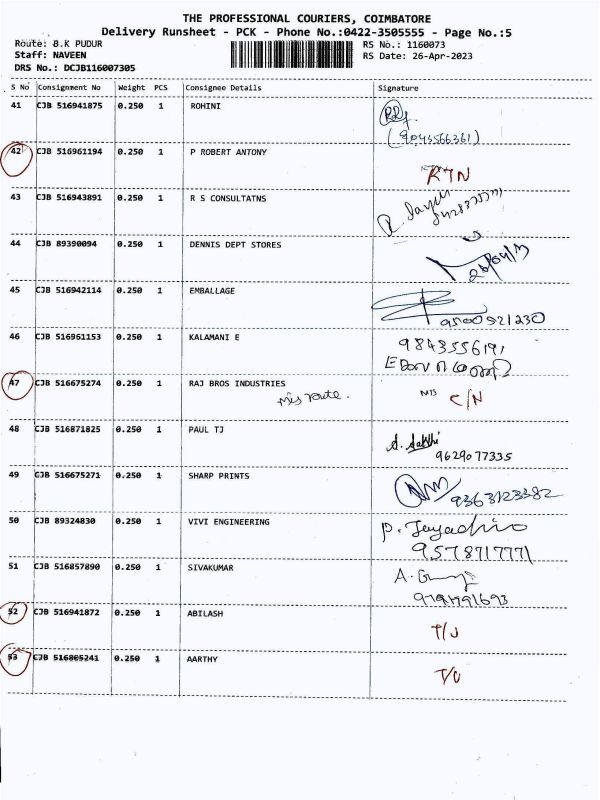 THE PROFESSIONAL COURIERS, COIMBATORE
Delivery Runsheet - PCK - Phone No.:0422-3505555 - Page No.:5
Route: B.K PUDUR RS No.: 1160073
Staff: NAVEEN RS Date: 26-Apr-2023
DRS No.: DCJB116007305
S No Consignment No Weight PCS Consignee Details Signature
41 CJB 516941875 0.250 1 ROHINI
(9043566361)
42 CJB 516961194 0.250 1 P ROBERT ANTONY RTN
43 CJB 516943891 0.250 1 R S CONSULTATNS
44 CJB 89390094 0.250 1 DENNIS DEPT STORES 26/04/23
45 CJB 516942114 0.250 1 EMBALLAGE
9500921230
46 CJB 516961153 0.250 1 KALAMANI E 9843556191
47 CJB 516675274 0.250 1 RAJ BROS INDUSTRIES C/N
Mis route.
48 CJB 516871825 0.250 1 PAUL TJ A. Sakthi
9629077335
49 CJB 516675271 0.250 1 SHARP PRINTS 9363123382
50 CJB 89324830 0.250 1 VIVI ENGINEERING
9578717771
51 CJB 516857890 0.250 1 SIVAKUMAR
9791791693
52 CJB 516941872 0.250 1 ABILASH
53 CJB 516805241 0.250 1 AARTHY